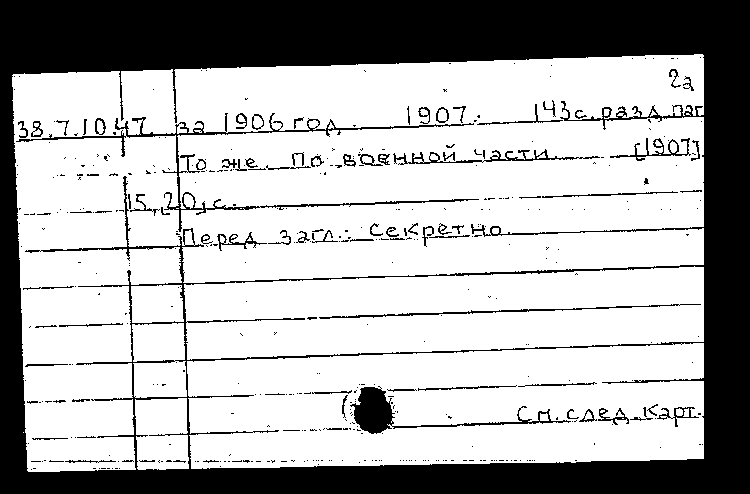 2а
38.7.10.47. за 1906 год. 1907. 143 с. разд. паг
То же. По военной части. [1907]
15, [20] с.
Перед загл.: Секретно.
См. след. карт.